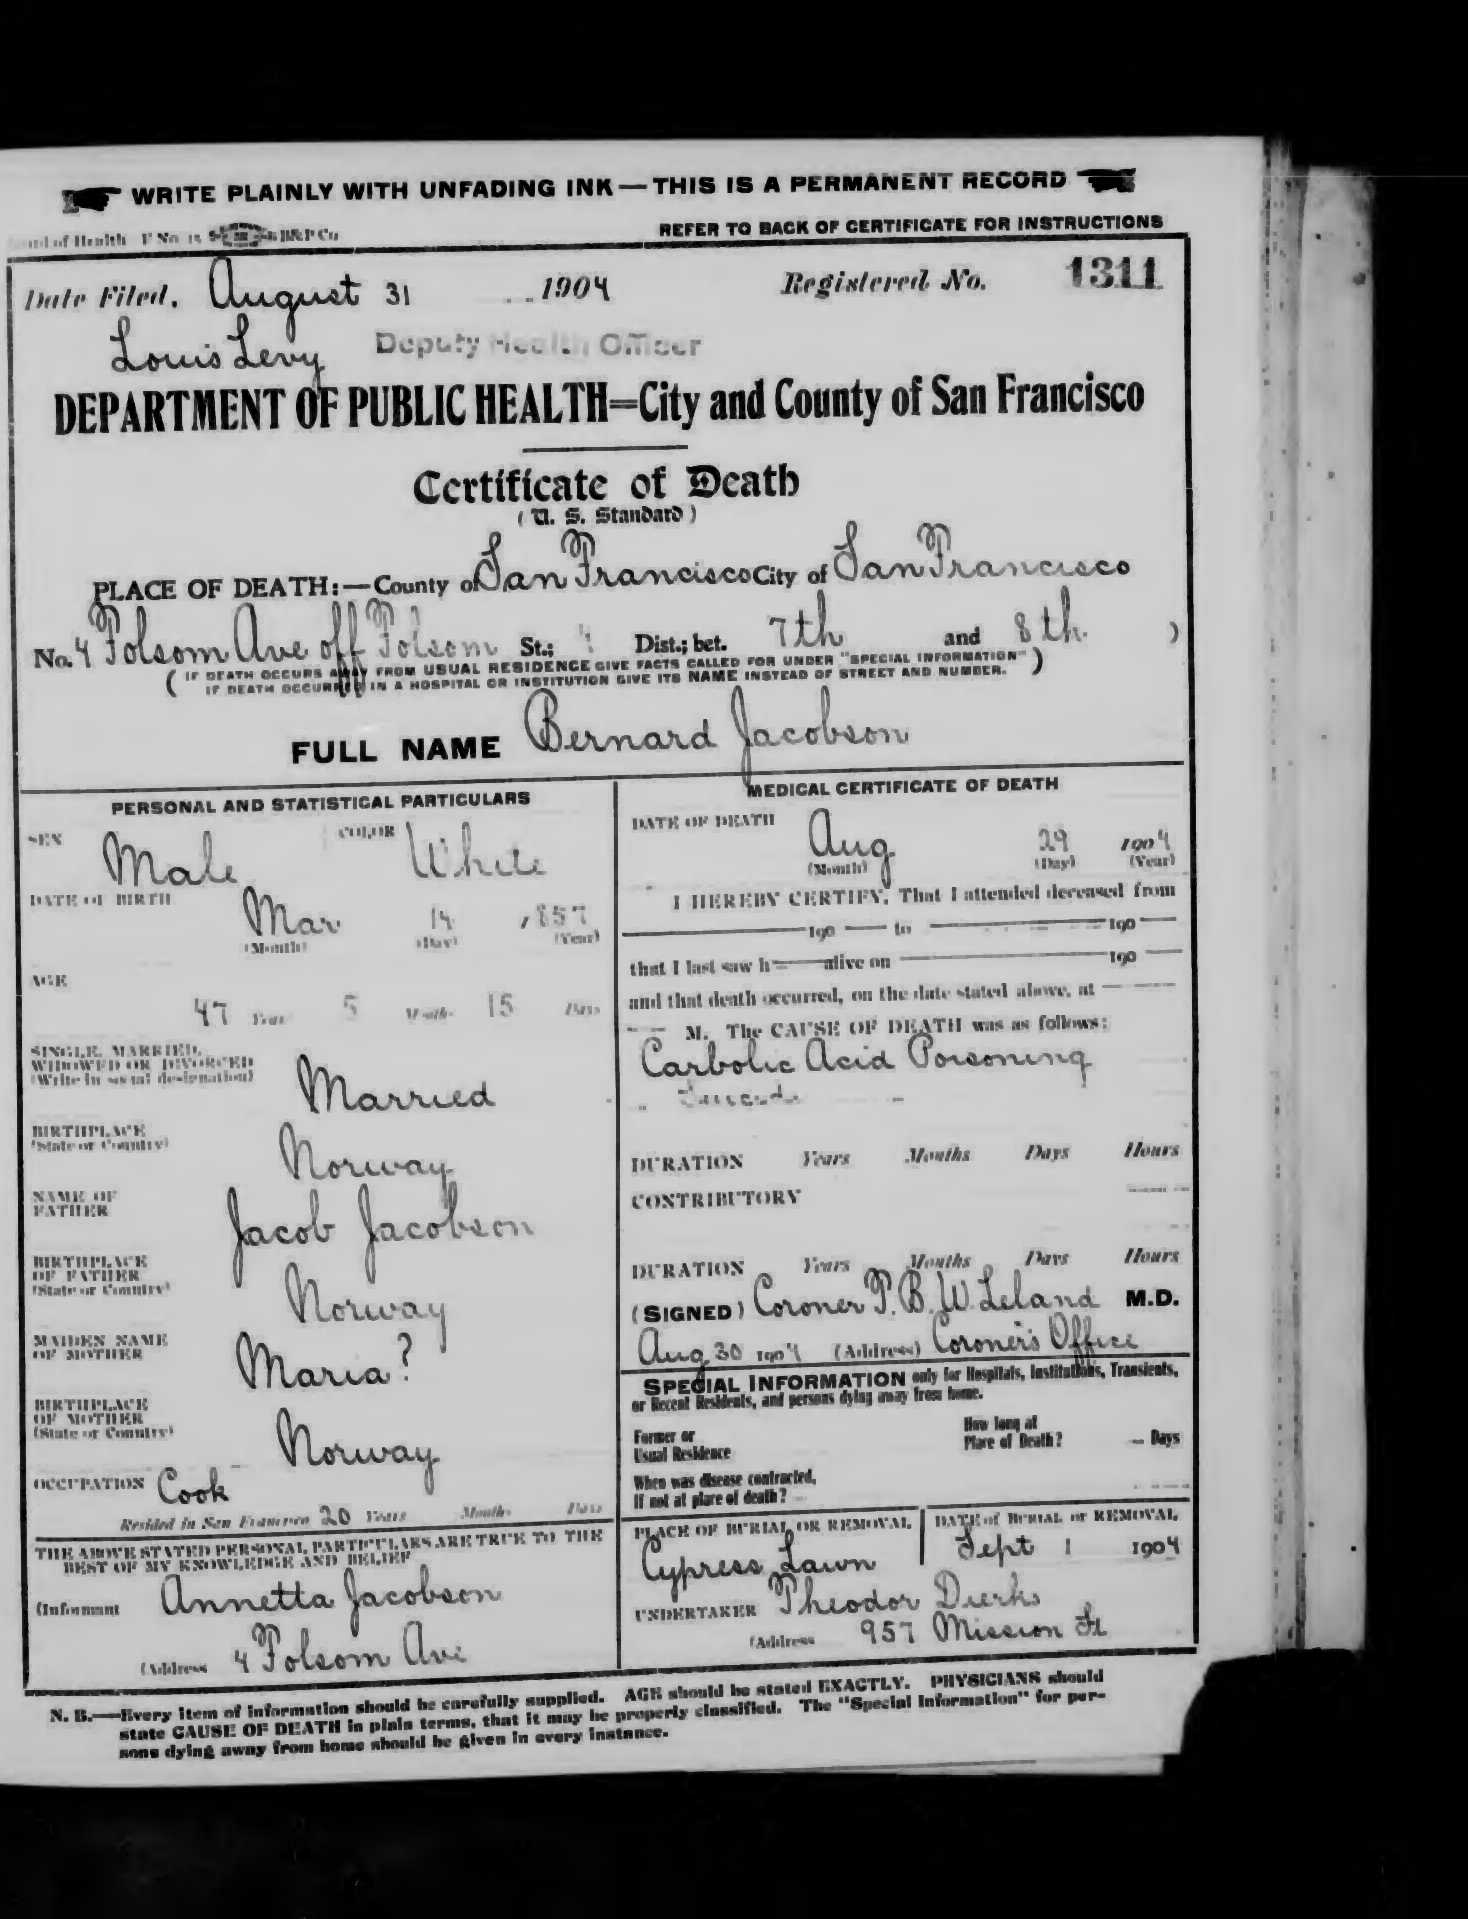 WRITE PLAINLY WITH UNFADING INK — THIS IS A PERMANENT RECORD
of Health F No 15 B&P Co REFER TO BACK OF CERTIFICATE FOR INSTRUCTIONS
Date Filed, August 31 1904 Registered No. 1311
Louis Levy Deputy Health Officer
DEPARTMENT OF PUBLIC HEALTH=City and County of San Francisco
Certificate of Death
( U. S. Standard )
PLACE OF DEATH:—County of San Francisco City of San Francisco
No. 4 Folsom Ave off Folsom St.; 4 Dist.; bet. 7th and 8th. )
( IF DEATH OCCURS AWAY FROM USUAL RESIDENCE GIVE FACTS CALLED FOR UNDER "SPECIAL INFORMATION" )
IF DEATH OCCURRED IN A HOSPITAL OR INSTITUTION GIVE ITS NAME INSTEAD OF STREET AND NUMBER.
FULL NAME Bernard Jacobson
PERSONAL AND STATISTICAL PARTICULARS
SEX Male COLOR White
DATE OF BIRTH Mar 14 1857
(Month) (Day) (Year)
AGE
47 Years 5 Months 15 Days
SINGLE, MARRIED,
WIDOWED OR DIVORCED
(Write in social designation) Married
BIRTHPLACE
(State or Country) Norway
NAME OF
FATHER Jacob Jacobson
BIRTHPLACE
OF FATHER
(State or Country) Norway
MAIDEN NAME
OF MOTHER Maria?
BIRTHPLACE
OF MOTHER
(State or Country) Norway
OCCUPATION Cook
Resided in San Francisco 20 Years Months Days
THE ABOVE STATED PERSONAL PARTICULARS ARE TRUE TO THE
BEST OF MY KNOWLEDGE AND BELIEF
(Informant Annetta Jacobson
(Address 4 Folsom Ave
MEDICAL CERTIFICATE OF DEATH
DATE OF DEATH Aug 29 1904
(Month) (Day) (Year)
I HEREBY CERTIFY, That I attended deceased from
190 — to — 190 —
that I last saw h — alive on — 190 —
and that death occurred, on the date stated above, at —
— M. The CAUSE OF DEATH was as follows:
Carbolic Acid Poisoning
Suicide
DURATION Years Months Days Hours
CONTRIBUTORY
DURATION Years Months Days Hours
(SIGNED) Coroner T. B. W. Leland M.D.
Aug 30 1904 (Address) Coroner's Office
SPECIAL INFORMATION only for Hospitals, Institutions, Transients,
or Recent Residents, and persons dying away from home.
Former or
Usual Residence
How long at
Place of Death? — Days
When was disease contracted,
If not at place of death?
PLACE OF BURIAL OR REMOVAL
Cypress Lawn
DATE of BURIAL or REMOVAL
Sept 1 1904
UNDERTAKER Theodor Dierks
(Address 957 Mission St
N. B.—Every item of information should be carefully supplied. AGE should be stated EXACTLY. PHYSICIANS should
state CAUSE OF DEATH in plain terms, that it may be properly classified. The "Special Information" for per-
sons dying away from home should be given in every instance.